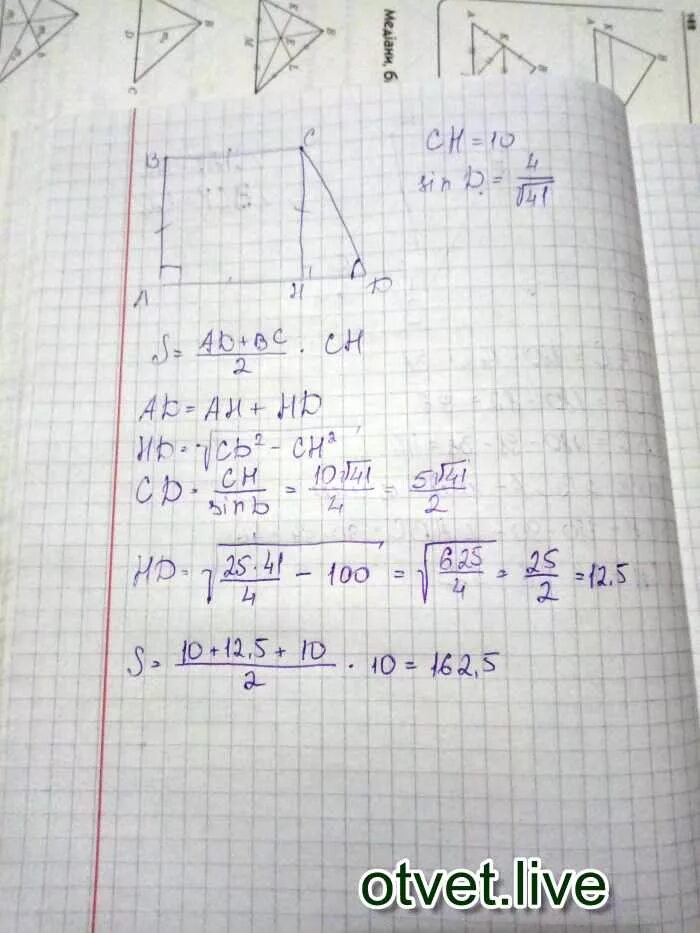 Медіани, б
B
C
A
H
D
CH = 10
sin D = 4/√41
S = (AD + BC)/2 · CH
AD = AH + HD
HD = √(CD² - CH²)
CD = CH/sin D = 10√41/4 = 5√41/2
HD = √(25·41/4 - 100) = √(625/4) = 25/2 = 12,5
S = (10 + 12,5 + 10)/2 · 10 = 162,5
otvet.live